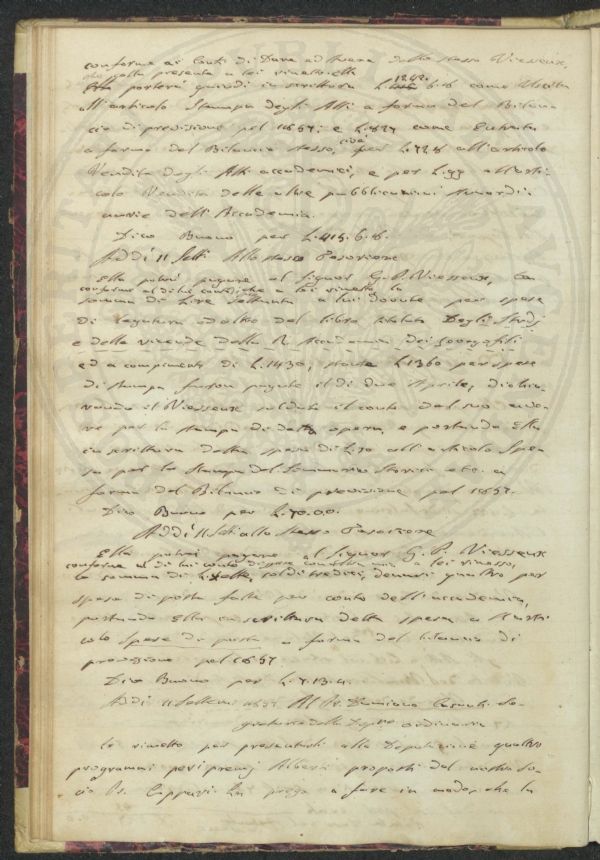 conforme ai Conti di Dare ed Avere dello stesso Vieusseux,
che potta presenta a lei rimetto. Ella
Ella porterà quindi in scrittura L. 1242. 6.8 come Uscita
all'articolo Stampa degli Atti a forma del Bilan
cio di previsione pel 1857; e L. 827 come Entrata
a forma del Bilancio stesso, cioè per L. 728 all'articolo
Vendita degli Atti accademici, e per L. 99 all'arti
colo Vendita delle altre pubblicazioni straordi
narie dell'Accademia.
Dico Buono per L. 415. 6. 8.
Addì 11 Sett. Allo stesso Tesoriere
Ella potrà pagare al Signor G. P. Vieusseux, la
conforme al di lui conto, che a lei rimetto, la
somma di Lire settanta a lui dovute per spese
di legatura ed altro del libro intitolato Degli Studj
e delle vicende della R. Accademia dei Georgofili
ed a compimento di L. 1430, stante L. 1360 per spese
di stampa furson pagate il dì due Aprile, dichia
rando il Vieusseux saldato il conto del suo ave
re per la stampa di detta opera, e portando Ella
in scrittura detta spesa di L. 70 all'articolo Spe
sa per la stampa del Sommario Storico etc. a
forma del Bilancio di previsione pel 1857.
Dico Buono per L. 70. 0. 0.
Addì 11 Sett. allo stesso Tesoriere
Ella potrà pagare al Signor G. P. Vieusseux
conforme al di lui conto di spese a lei rimesso,
la somma di L. sette, soldi tredici, denari quattro per
spese di posta fatte per conto dell'accademia,
portando Ella in scrittura detta spesa a l'arti
colo Spese di posta a forma del bilancio di
previsione pel 1857
Dico Buono per L. 7. 13. 4.
Addì 11 Settem. 1857. Al Dr. Damiano Casanti Se
gretario della Deput.ne ordinaria
Le rimetto per presentarli alla Deputazione quattro
programmi pei premj Alberti proposti dal nostro So
cio Dr. Capponi. La prego a fare in modo, che la